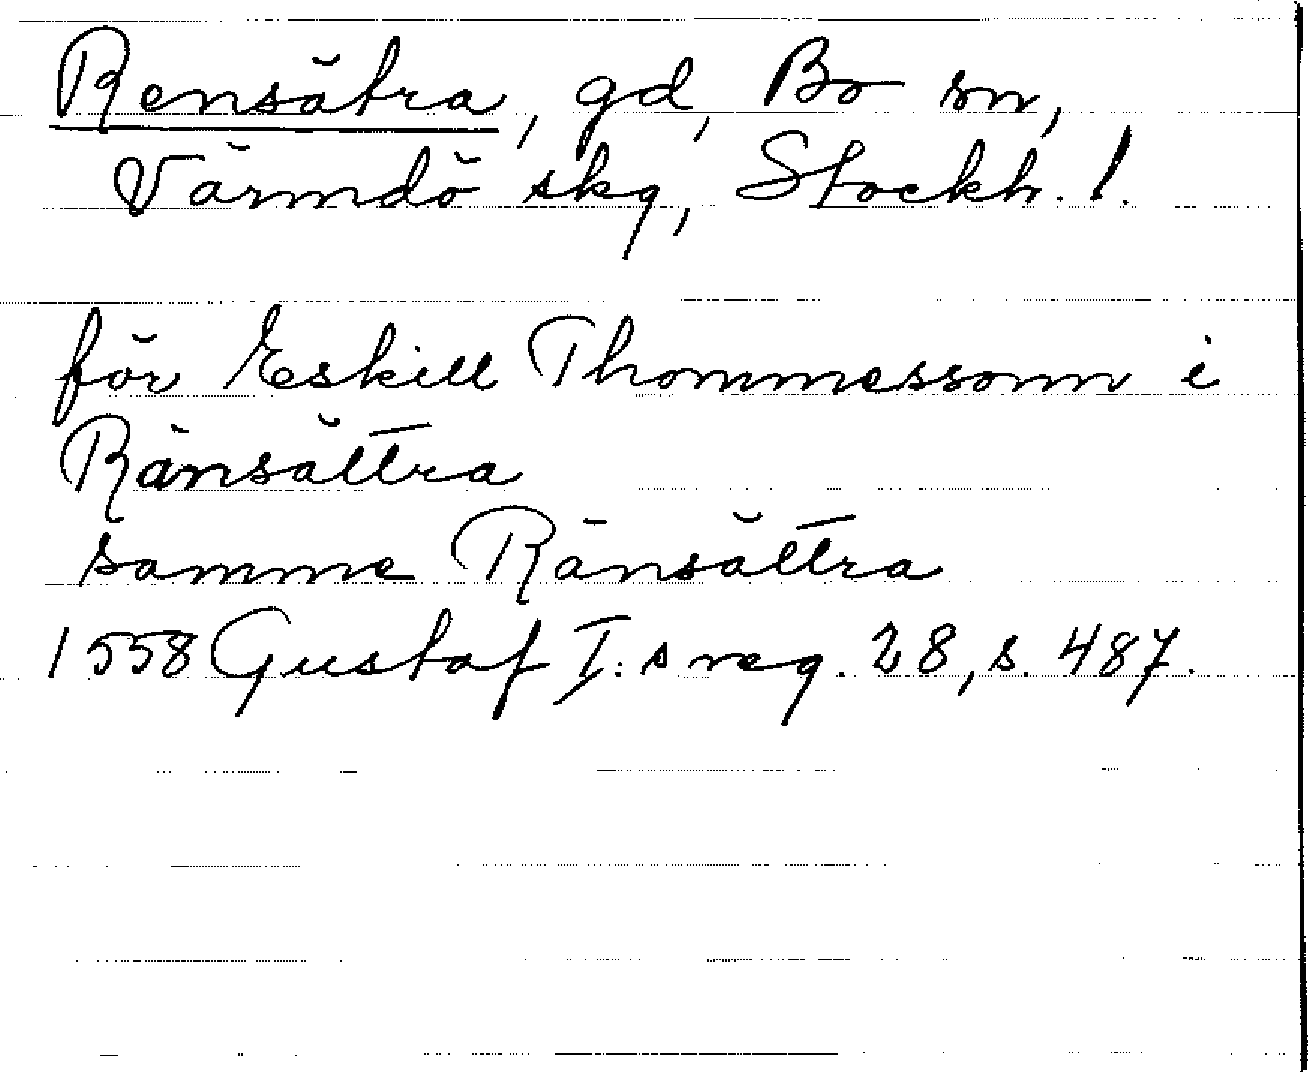 Rensätra, gd, Bo sn,
Värmdö skg, Stockh. l.
för Eskill Thommessonn i
Ränsättra
samme Ränsättra
1558 Gustaf I:s reg. 28, s. 487.